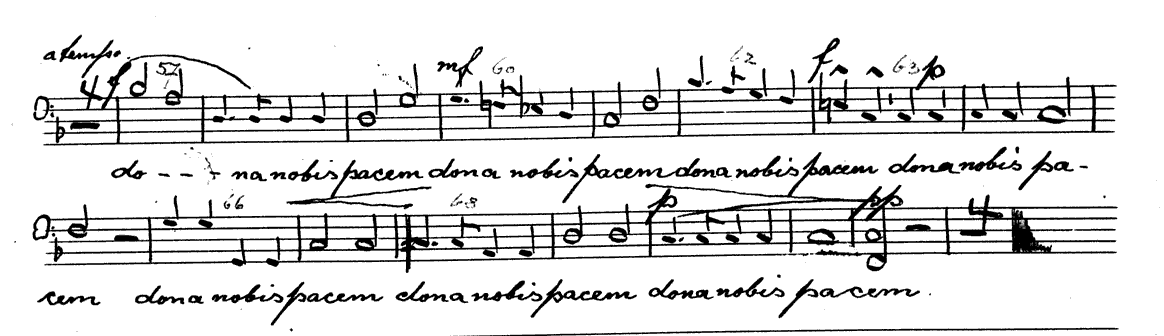 a tempo
4 f 57 mf 60 62 f 63 p
do - - - na nobis pacem dona nobis pacem dona nobis pacem dona nobis pa-
66 68 p pp 4
cem dona nobis pacem dona nobis pacem dona nobis pacem.